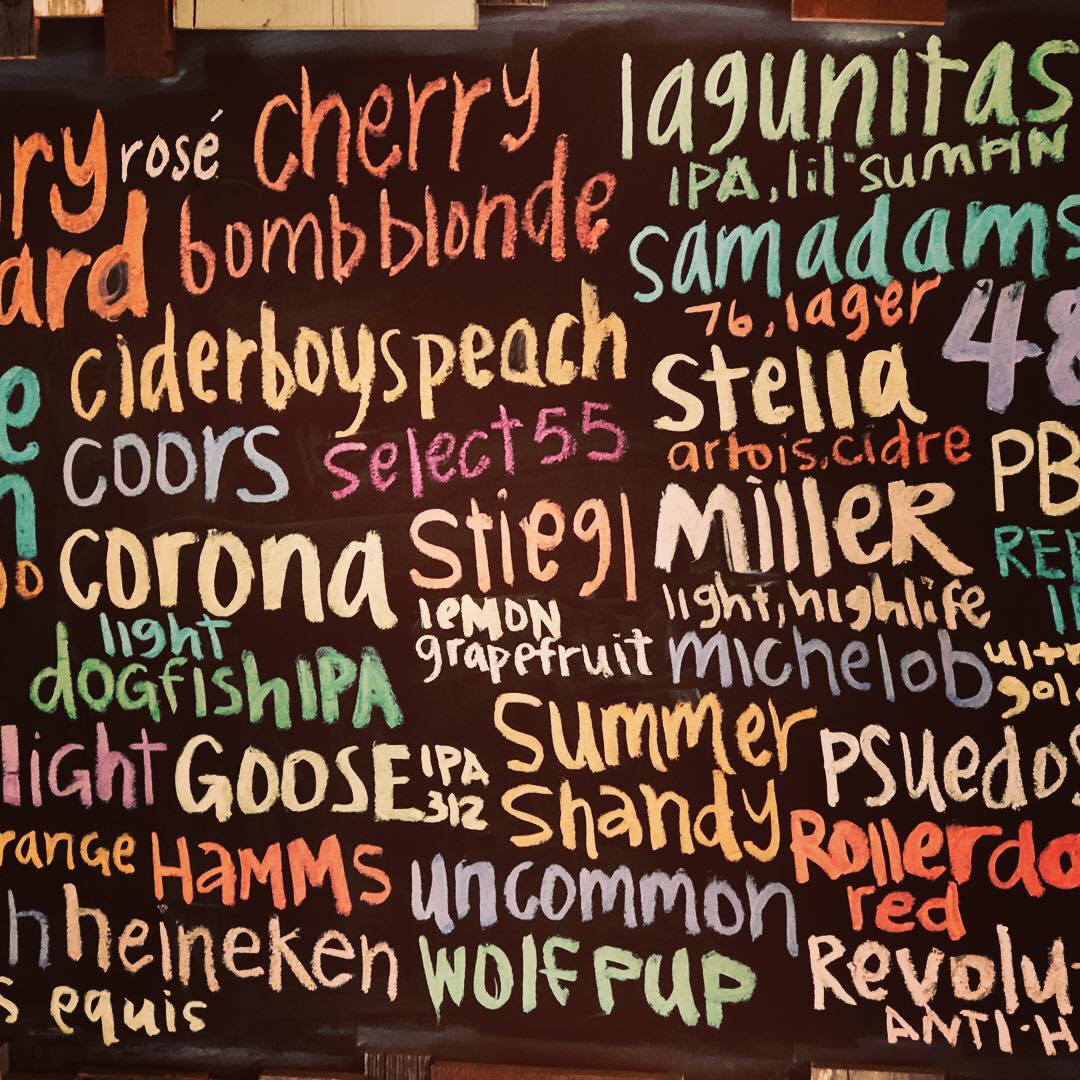 ry rosé cherry
lagunitas
IPA, lil sumpin
ard bomb blonde
samadams
76, lager
48
ciderboys peach
stella
artois, cidre
e
coors select 55
PB
n
corona
stiegl
MilleR
light, highlife
light
leMON
grapefruit
michelob
dogfish IPA
summer
shandy
light GOOSE IPA
312
psuedos
range HAMMS
Rollerdo
red
uncommon
h heineken
WOLF PUP
Revolu
ANTI-H
s equis